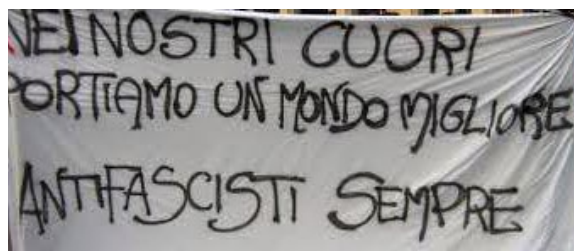 NEI NOSTRI CUORI
PORTIAMO UN MONDO MIGLIORE
ANTIFASCISTI SEMPRE